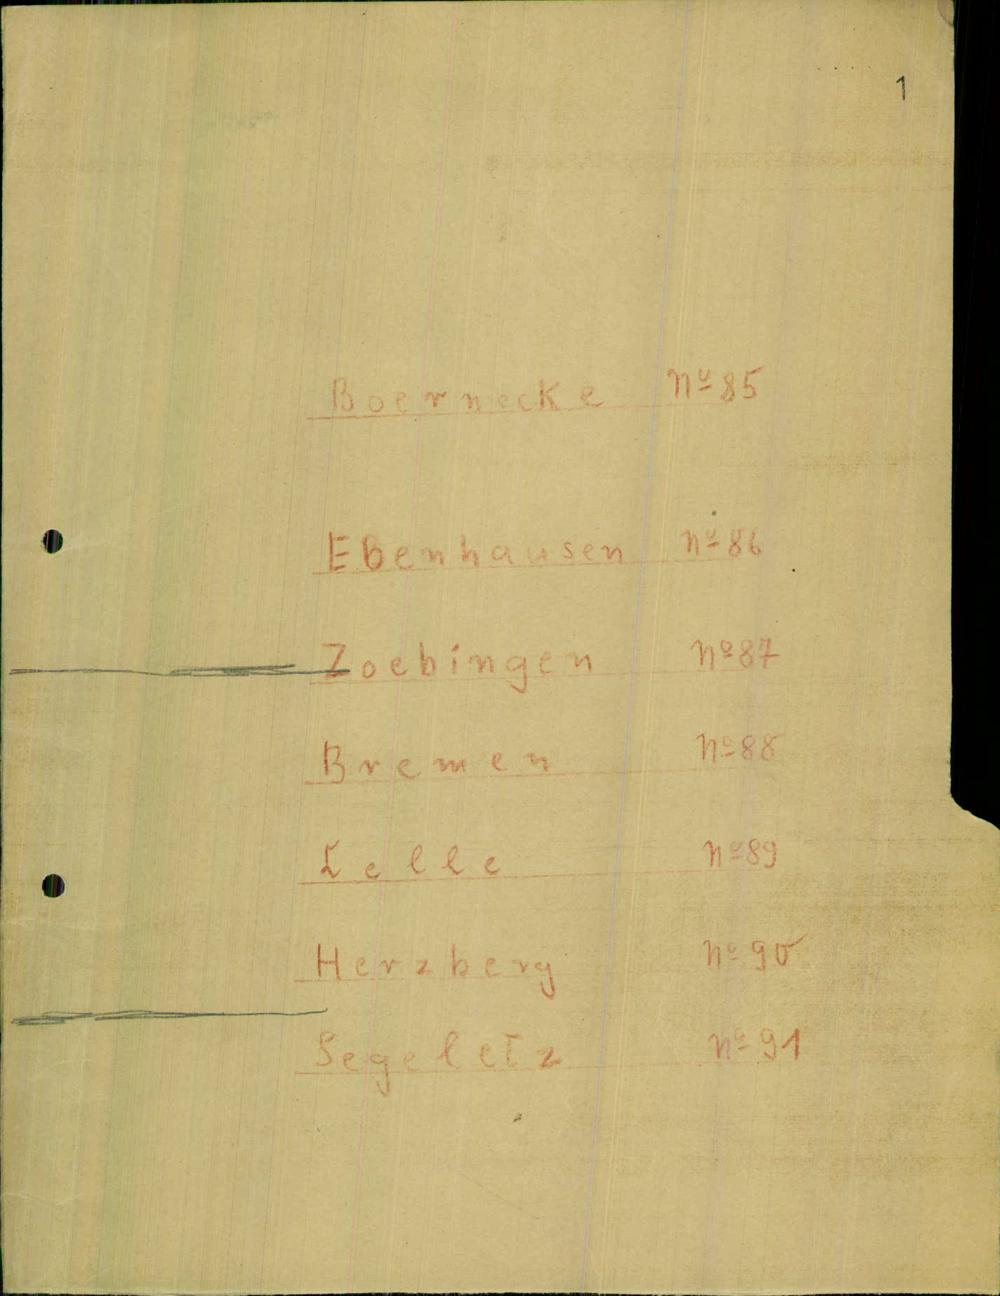 1
Boernecke Nº 85
Ebenhausen Nº 86
Zoebingen Nº 87
Bremen Nº 88
Lelle Nº 89
Herzberg Nº 90
Segeletz Nº 91